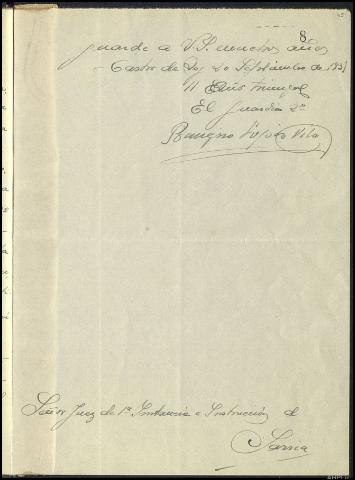 8
guarde a V.S. muchos años
Castro de Rey 20 Septiembre de 1937
II Año Triunfal
El Guardia 2º
Benigno López Vila
Señor Juez de 1ª Instancia e Instrucción de
Sarria